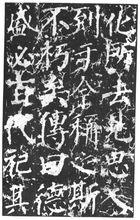 化所去見思
到于今稱之斯
不朽矣傳曰德
盛必百代祀其